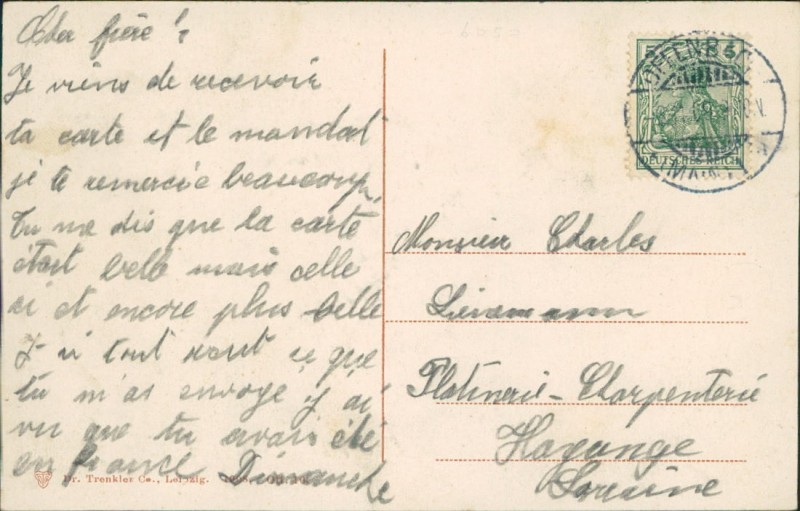 Cher frère!
Je viens de recevoir
ta carte et le mandat
je te remercie beaucoup,
Tu me dis que la carte
était belle mais celle
ci et encore plus belle
tout ce que
tu m'as envoyé j'ai
vu que tu avais été
en France Dimanche
Dr. Trenkler Co., Leipzig.
5 5
DEUTSCHES REICH
OFFENBACH
(MAIN)
Monsieur Charles
Platinerie-Charpenterie
Hayange
Lorraine